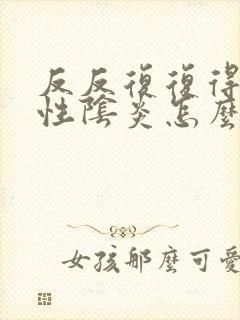 反反復復得
性陰炎怎麼
女孩那麼可愛